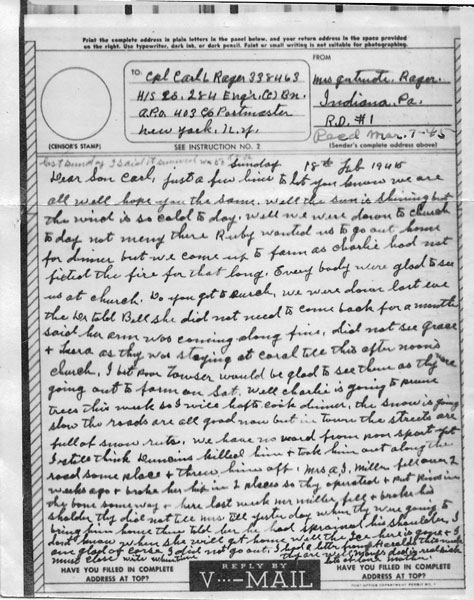 Print the complete address in plain letters in the panel below, and your return address in the space provided
on the right. Use typewriter, dark ink, or dark pencil. Faint or small writing is not suitable for photographing.
TO:
Cpl Carl L Rager 338463
H/S Co. 284 Engr. (C) Bn.
A.P.O. 403 C/o Postmaster
New York. N.Y.
(CENSOR'S STAMP)
SEE INSTRUCTION NO. 2
FROM
Mrs Gertrude. Rager.
Indiana, Pa.
R.D. #1
Recd Mar. 7-45
(Sender's complete address above)
Last Sunday I said it
Sunday 18th Feb 1945
Dear Son Carl, just a few lines to let you know we are
all well hope you the same. Well the sun is shining but
the wind is so cold to day. well we were down to church
to day not meny there Ruby wanted us to go out home
for dinner but we come up to farm as Charlie had not
ficted the fire for that long. Every body were glad to see
us at church. Do you get to church, we were down last eve
the Dr told Bell she did not need to come back for a month
said her arm was coming along fine, did not see grace
+ as thy was staying at coral till this after noon's
church. I bet poor Towser would be glad to see them as thy were
going out to farm on Sat. Well Charlie is going to prune
trees this week so I will hafto cook dinner, the snow is going
slow the roads are all good now but in town the streets are
full of snow ruts. We have no word from poor sport yet
I still think killed him + took him out along the
road some place + threw him off. Mrs A.J. Miller fell over 2
weeks ago + broke her hip in 2 places so thy operated + put pins in
the bone some way + here last week mr miller fell + broke his
sholder thy did not tell Mrs till yester day when thy was going to
bring him home then told her he had sprained his shoulder, I
don't know when she will get home well the ice here is gone + I
am glad of corse I did not go out. I had a letter from Harold this week
must close write when time
mother
HAVE YOU FILLED IN COMPLETE
ADDRESS AT TOP?
REPLY BY
V···-MAIL
HAVE YOU FILLED IN COMPLETE
ADDRESS AT TOP?